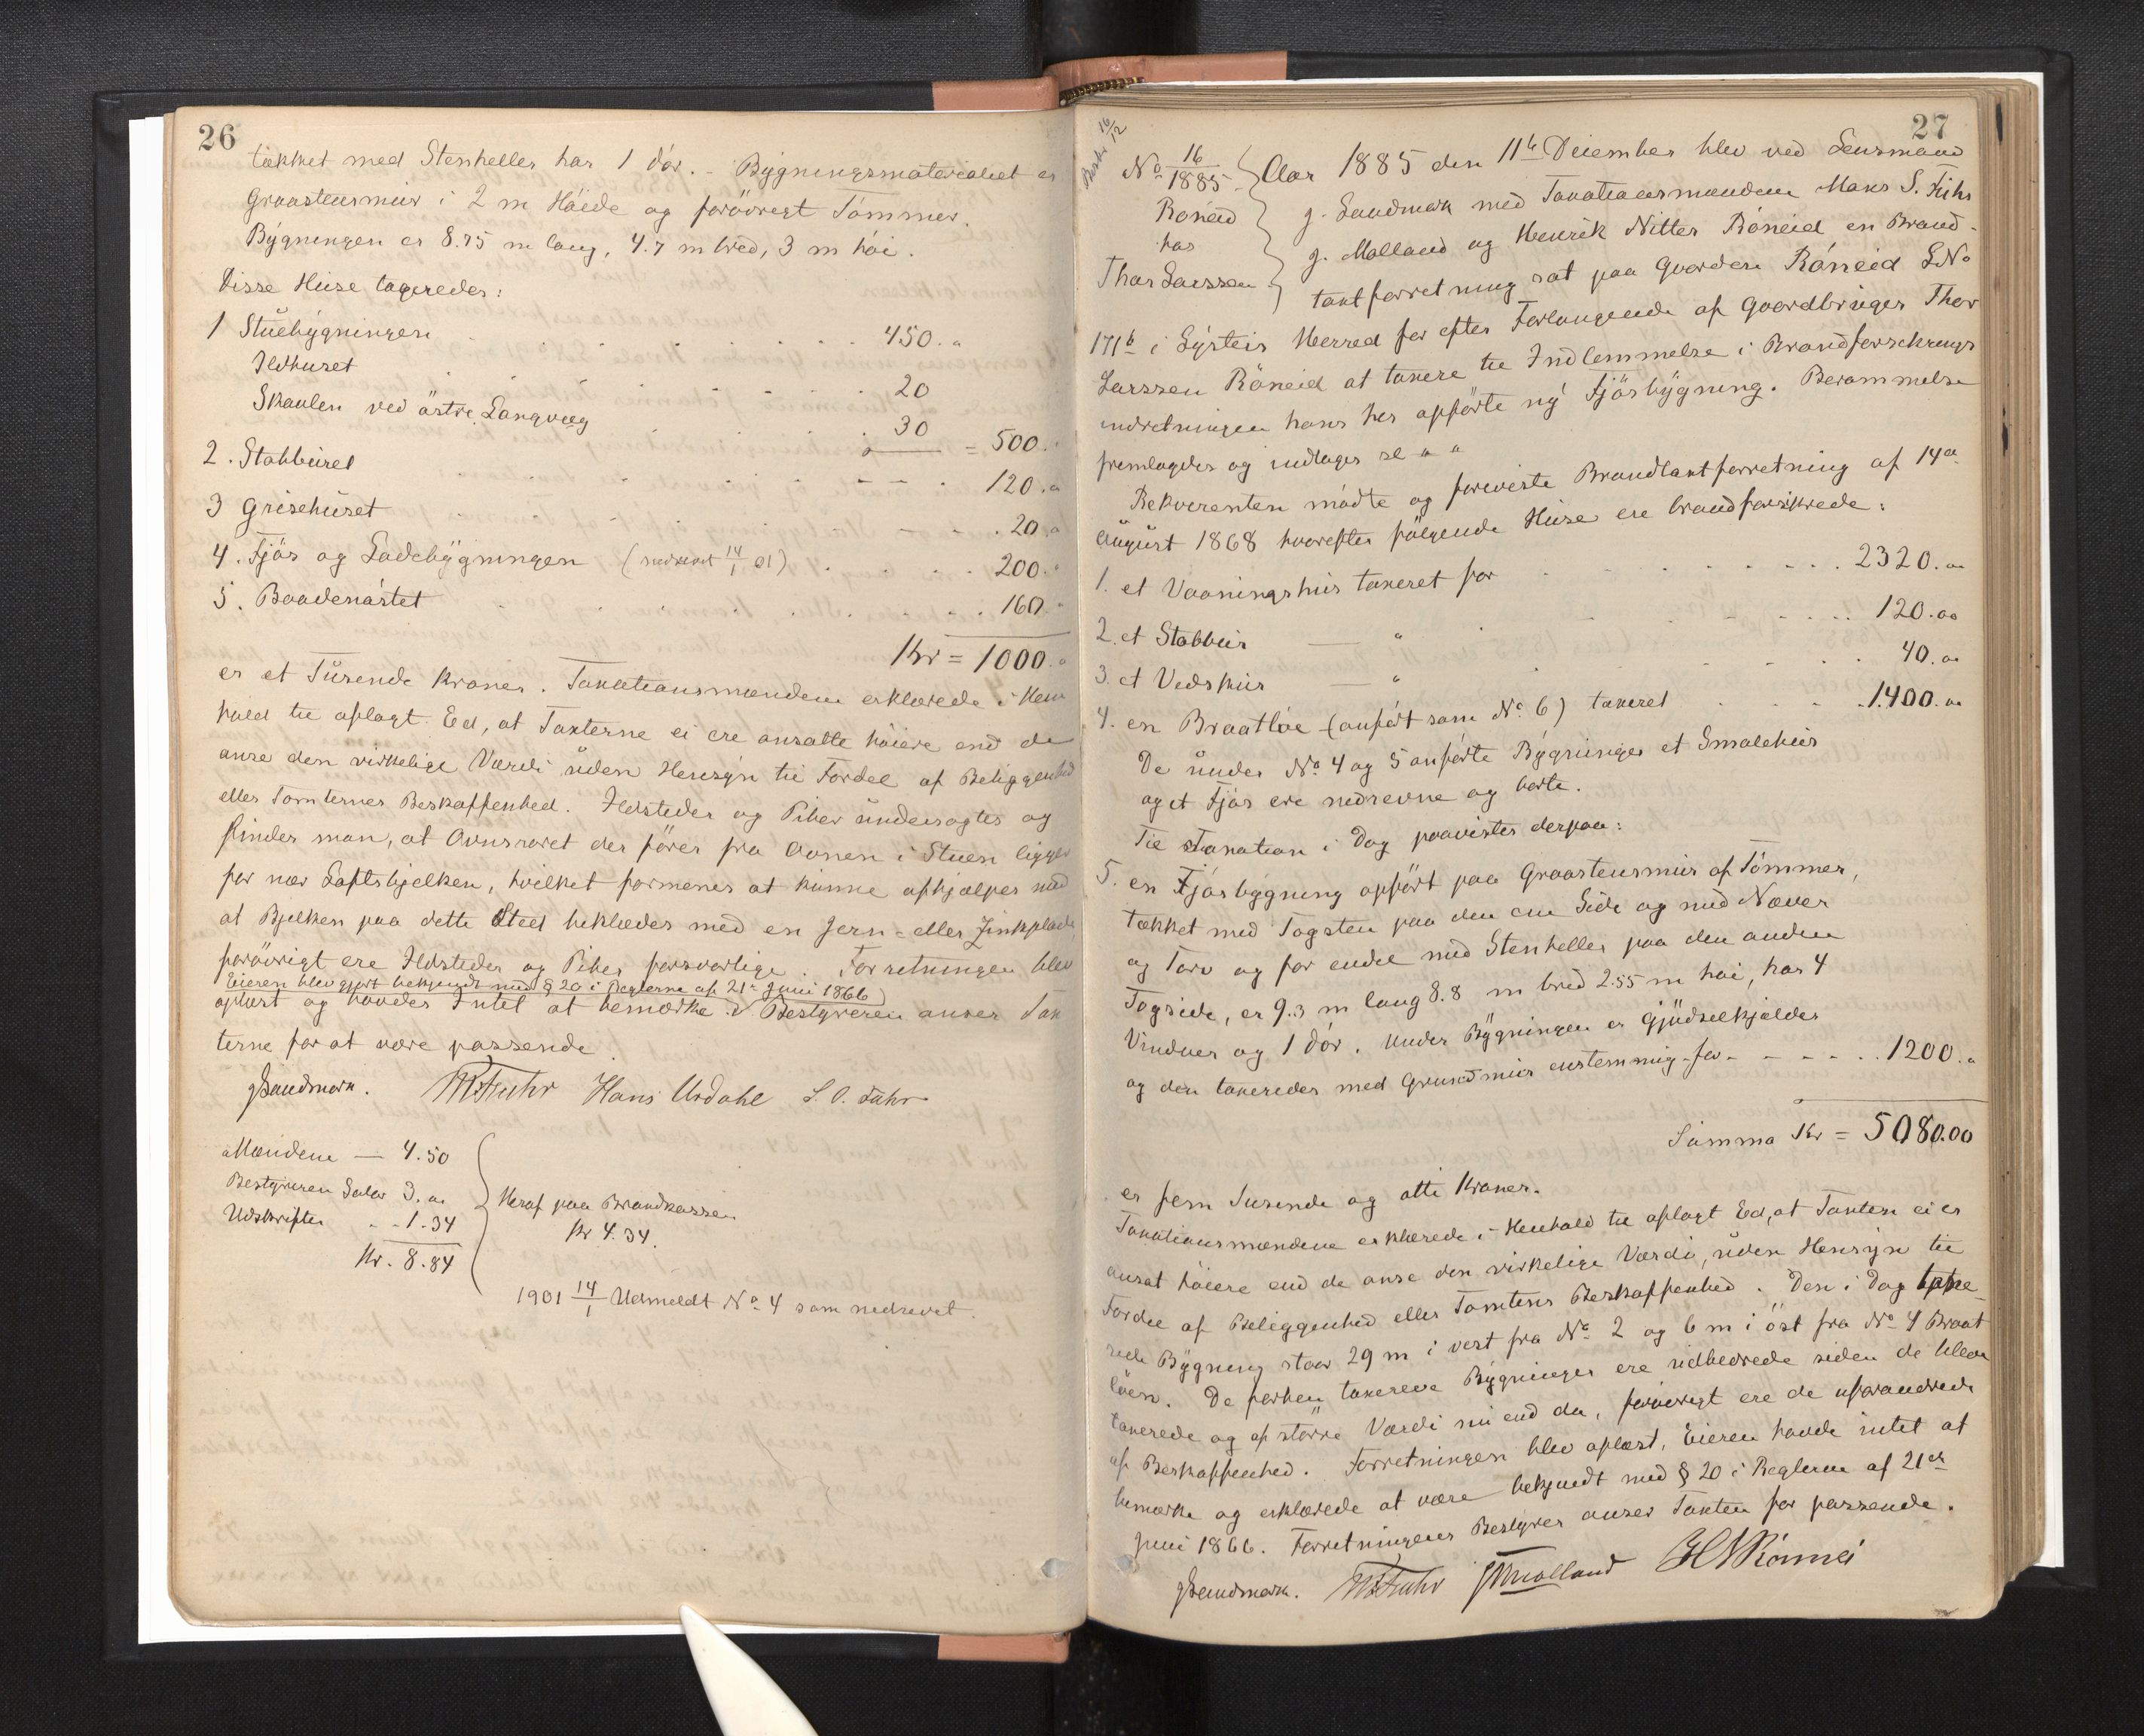 26
tækket med Stenheller har 1 dör. - Bygningsmaterialiet er
Graastensmur i 2 m Höide og forövrigt Tömmer.
Bygningen er 8.75 m lang, 4.7 m bred, 3 m höi.
Disse Huse taxeredes:
1 Stuebygningen 450. "
Ildhuset 20
Skaulen ved östre Langvæg 30 = 500. "
2. Stabburet 120. "
3 Grisehuset 20 "
4. Fjös og Ladebygningen (nedrevet 14/1 01) 200. "
5. Baadenöstet 160 "
Kr = 1000. "
er et Tusende Kroner. Taxationsmændene erklærede i Hen
hold til aflagt Ed, at Taxterne ei ere ansatte höiere end de
anse den virkelige Værdi uden Hensyn til Fordel af Beliggenhed
eller Tomternes Beskaffenhed. Ildsteder og Piber undersøgtes og
finder man, at Ovnsröret der förer fra Ovnen i Stuen ligger
for nær Loftsbjelken, hvilket formenes at kunne afhjælpes med
at Bjelken paa dette Sted beklædes med en Jern- eller Zinkplade
forövrigt ere Ildsteder og Piber forsvarlige. Forretningen blev
Eieren blev gjort bekjendt med § 20 i Reglerne af 21de Juni 1866
oplæst og havdes Intet at bemærke. Bestyreren anser Tax
terne for at være passende.
JSandmark. MSFuhr Hans Urdahl S. O. Fuhr
Mændene — 4.50
Bestyreren Salar 3. "
Udskriften - - 1.34
Kr. 8.84
Heraf paa Brandkassen
Kr 4.34.
1901 14/1 Udmeldt No 4 som nedrevet.
27
16/12
No 16/1885
Röneid
hos
Thor Larssen
Aar 1885 den 11te December blev ved Lensmand
J. Sandmark med Taxationsmændene Mons S. Fuhr
J. Molland og Henrik Nitter Röneid en Brand-
taxtforretning sat paa Gaarden Röneid L No
171b i Lysteir Herred for efter Forlangende af Gaardbruger Thor
Larssen Röneid at taxere til Indlemmelse i Brandforsikrings
indretningen hans her opförte ny Fjösbygning. Berammelse
fremlagdes og indtages sl " "
Rekvirenten mödte og foreviste Brandtaxtforretning af 14de
August 1868 hvorefter fölgende Huse ere brandforsikrede:
1. et Vaaningshus taxeret for 2320. oo
2. et Stabbur — " 120. oo
3. et Vedskur " 40. oo
4. en Braatlöe (anfört som No 6) taxeret 1400. oo
De under No 4 og 5 anförte Bygninger et Smalehus
og et Fjös ere nedrevne og borte.
Til Taxation i Dag paavistes derpaa:
5. en Fjösbygning opfört paa Graastensmur af Tömmer,
tækket med Tagsten paa den ene Side og med Næver
og Torv og for endel med Stenheller paa den anden
Tagside, er 9.3 m lang 8.8 m bred 2.55 m höi, har 4
Vinduer og 1 dör. Under Bygningen er Gjödselkjelder
og den taxeredes med Grundmur enstemmig for 1200. "
Summa Kr = 5080.00
er fem Tusende og otti Kroner.
Taxationsmændene erklærede i Henhold til aflagt Ed, at Taxten ei er
ansat höiere end de anse den virkelige Værdi, uden Hensyn til
Fordel af Beliggenhed eller Tomtens Beskaffenhed. Den i Dag taxe-
rede Bygning staar 29 m i vest fra No 2 og 6 m i öst fra No 4 Braat
löen. De forhen taxerede Bygninger ere udbedrede siden de bleve
taxerede og af större Værdi nu end da, forövrigt ere de uforandrede
af Beskaffenhed. Forretningen blev oplæst, Eieren havde intet at
bemærke og erklærede at være bekjendt med § 20 i Reglerne af 21de
Juni 1866. Forretningens Bestyrer anser Taxten for passende.
JSandmark. MSFuhr JMolland HNRönnei